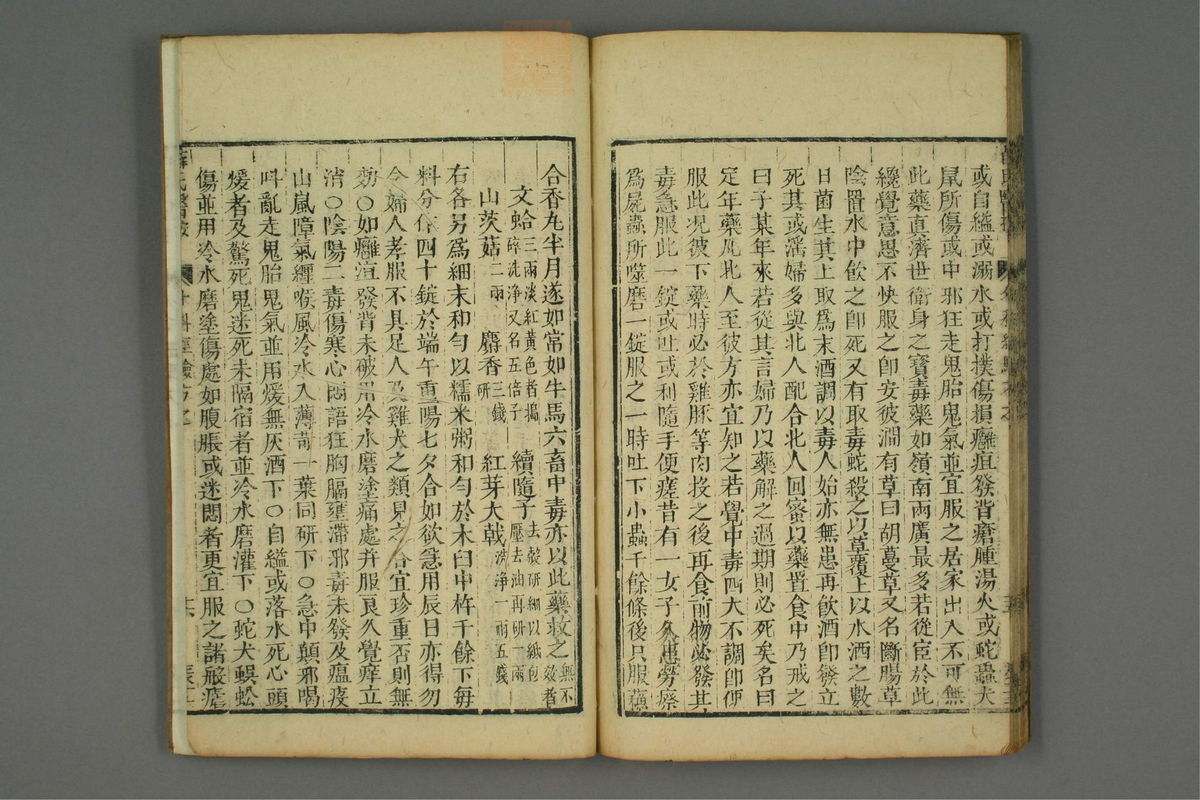 或自縊或溺水或打撲傷損癰疽發背瘡腫湯火或蛇蟲犬
鼠所傷或中邪狂走鬼胎鬼氣並宜服之居家出入不可無
此藥真濟世衛身之寶毒藥如嶺南兩廣最多若從臣於此
纔覺意思不快服之卽安彼澗有草曰胡蔓草又名斷腸草
陰置水中飲之卽死又有取毒蛇殺之以草覆上以水洒之數
日菌生其上取爲末酒調以毒人始亦無患再飲酒卽發立
死其或淫婦多與北人配合北人回蜜以藥置食中乃戒之
曰子某年來若從其言婦乃以藥解之過期則必死矣名曰
定年藥凡北人至彼方亦宜知之若覺中毒四大不調卽便
服此况彼下藥時必於雞豚等肉投之後再食前物必發其
毒急服此一錠或吐或利隨手便瘥昔有一女子久患勞瘵
爲屍蟲所噬磨一錠服之一時吐下小蟲千餘條後只服蘇
合香丸半月遂如常如牛馬六畜中毒亦以此藥救之無不效者
文蛤三兩淡紅黃色者搗碎洗淨又名五倍子 續隨子去殼研細以紙包壓去油再研一兩
山茨菇二兩 麝香三錢研 紅芽大戟洗淨一兩五錢
右各另爲細末和勻以糯米粥和勻於木臼中杵千餘下每
料分作四十錠於端午重陽七夕合如欲急用辰日亦得勿
令婦人孝服不具足人及雞犬之類見之合宜珍重否則無
効○如癰疽發背未破用冷水磨塗痛處并服良久覺痒立
消○陰陽二毒傷寒心悶語狂胸膈壅滯邪毒未發及瘟疫
山嵐障氣纏喉風冷水入薄荷一葉同研下○急中顛邪喝
呌亂走鬼胎鬼氣並用煖無灰酒下○自縊或落水死心頭
煖者及驚死鬼迷死未隔宿者並冷水磨灌下○蛇犬蜈蚣
傷並用冷水磨塗傷處如腹脹或迷悶者更宜服之諸般瘡
薛氏醫案